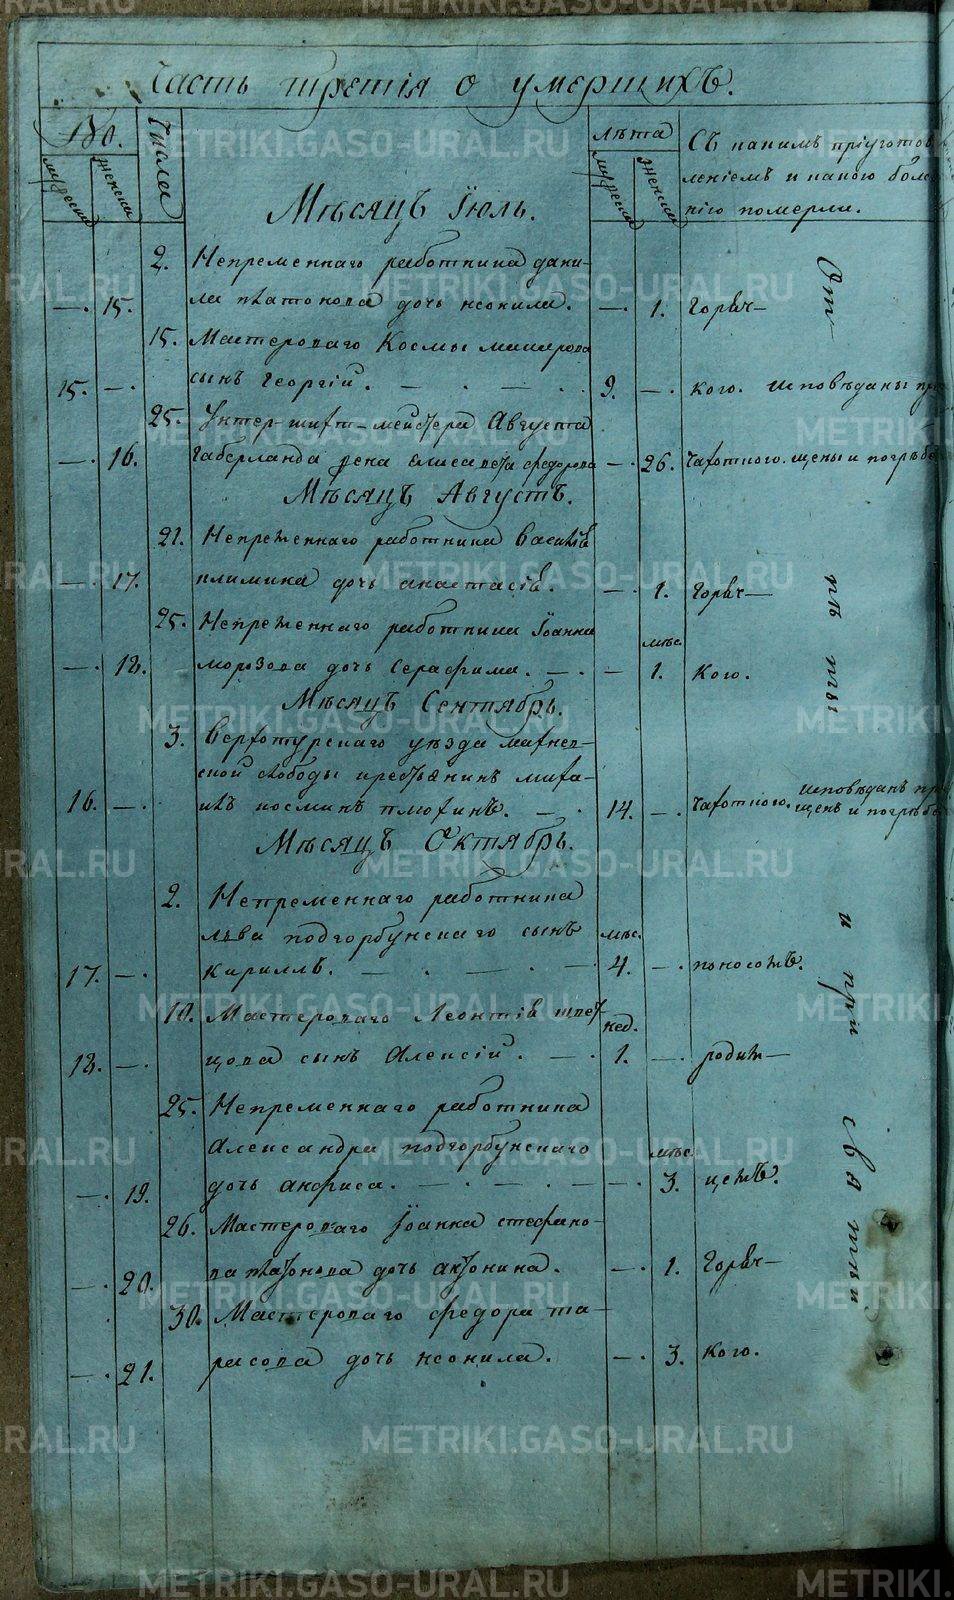 Часть третія о умершихъ.
Мужеска
Женска
Числа
Лѣта
Мужеска
Женска
Съ какимъ пріуготов
леніемъ и какою боле
нію померли.
Мѣсяцъ Іюль.
2. Непременнаго работника Дани-
ла Платонова дочь Неонила.
— 15. — 1. Горяч—
15. Мастероваго Космы
сынъ Георгій.
15. — 9. — кого. исповѣданы пр
25. Унтер-шихт-мейстера Августа
Габерланда жена Елисавета Федорова
— 16. — 26. Чахотного. щены и погрѣбе
Мѣсяцъ Августъ.
21. Непременнаго работника Василія
Климина дочь Анастасія.
— 17. — 1. Горяч—
25. Непременнаго работника Іоанна
Морозова дочь Серафима.
— 18. — мѣс. 1. кого.
Мѣсяцъ Сентябрь.
3. Верхотурскаго уѣзда Махнев-
ской слободы крестьянинъ Миха-
илъ Косминъ Плюхинъ.
16. — 14. — Чахотного. исповѣданъ пр
щенъ и погрѣбе
Мѣсяцъ Октябрь.
2. Непременнаго работника
Льва Подгорбунскаго сынъ
Кириллъ.
17. — мѣс. 4. — поносомъ.
10. Мастероваго Леонтія Швец-
цова сынъ Алексій.
18. — нед. 1. — родим—
25. Непременнаго работника
Александра Подгорбунскаго
дочь Анфиса.
— 19. — мѣс. 3. цемъ.
26. Мастероваго Іоанна Стефано-
ва Платонова дочь Антонина.
— 20. — 1. Горяч—
30. Мастероваго Федора Та-
расова дочь Неонила.
— 21. — 3. кого.
От
пѣты
и при
святы
METRIKI.GASO-URAL.RU